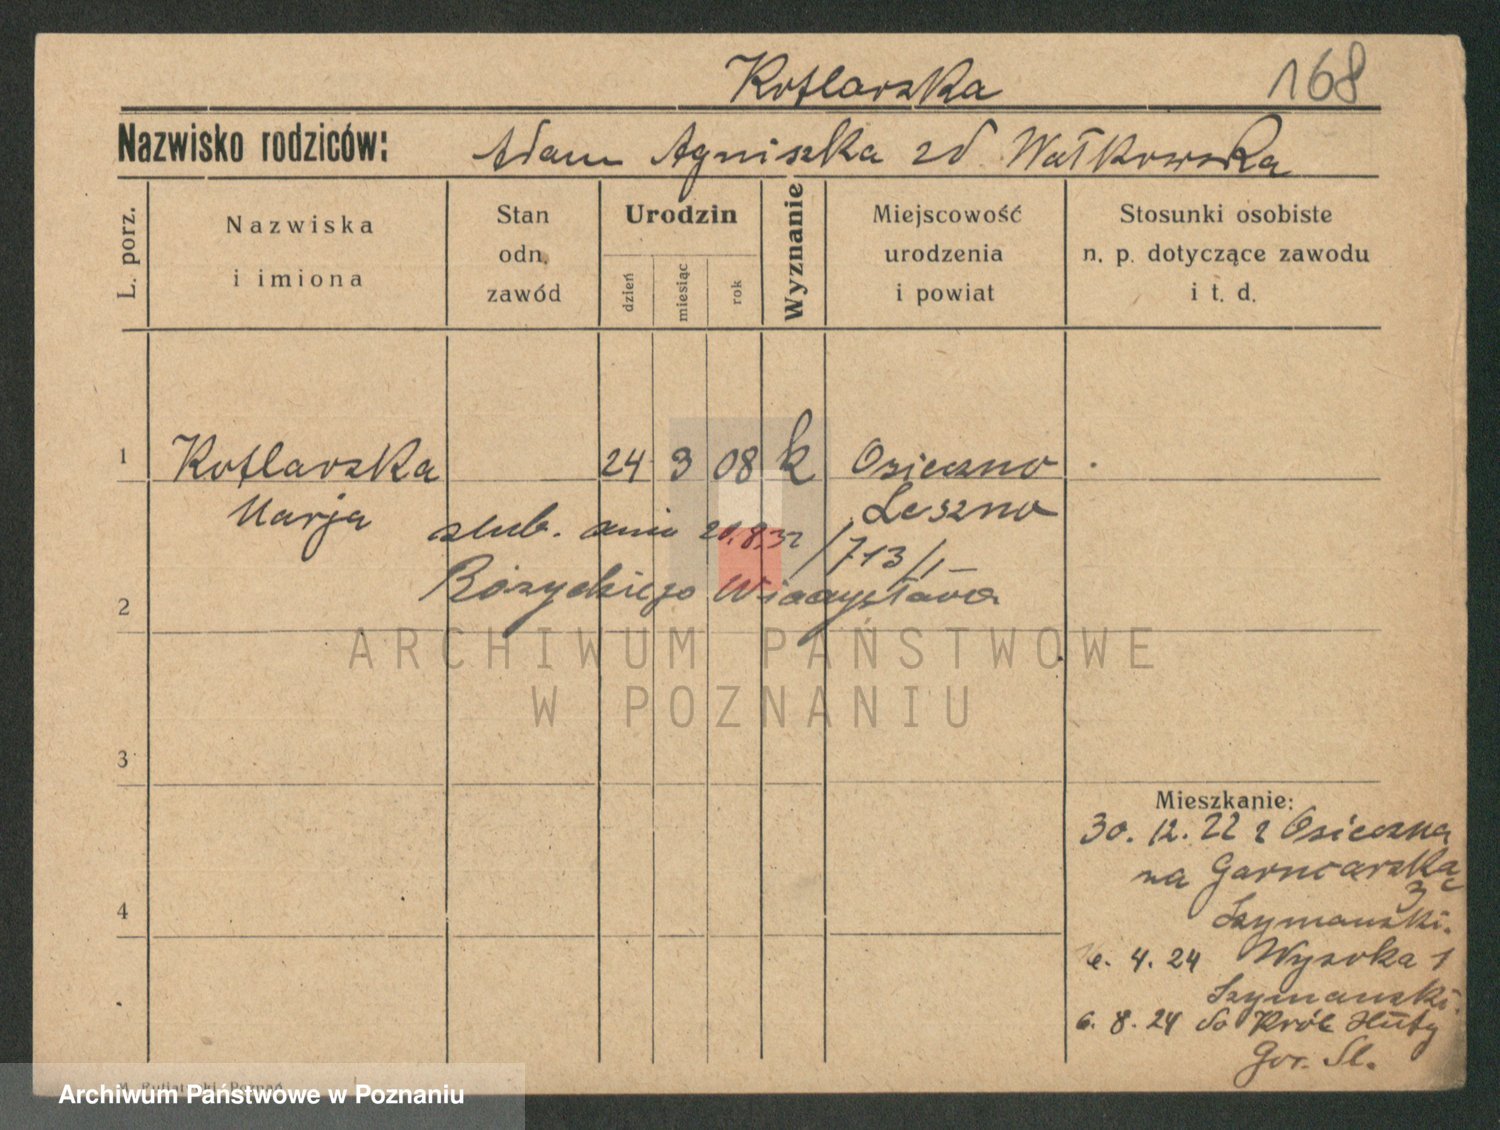 Kotlarska 168
Nazwisko rodziców: Adam Agniszka zd Wałkowska
L. porz.
Nazwiska
i imiona
Stan
odn.
zawód
Urodzin
dzień
miesiąc
rok
Wyznanie
Miejscowość
urodzenia
i powiat
Stosunki osobiste
n. p. dotyczące zawodu
i t. d.
1 Kotlarska 24 3 08 k Osieczno
Marja Leszno
slub. dnia 20.8.32 /713/
Różyckiego Władysława
2
ARCHIWUM PAŃSTWOWE
W POZNANIU
3
Mieszkanie:
30. 12. 22 z Osieczna
na Garncarska
3
Szymanski.
4
4. 24 Wysoka 1
Szymanski.
6. 8. 24 do Król Huty
Gor. Sl.
Poznań
Archiwum Państwowe w Poznaniu